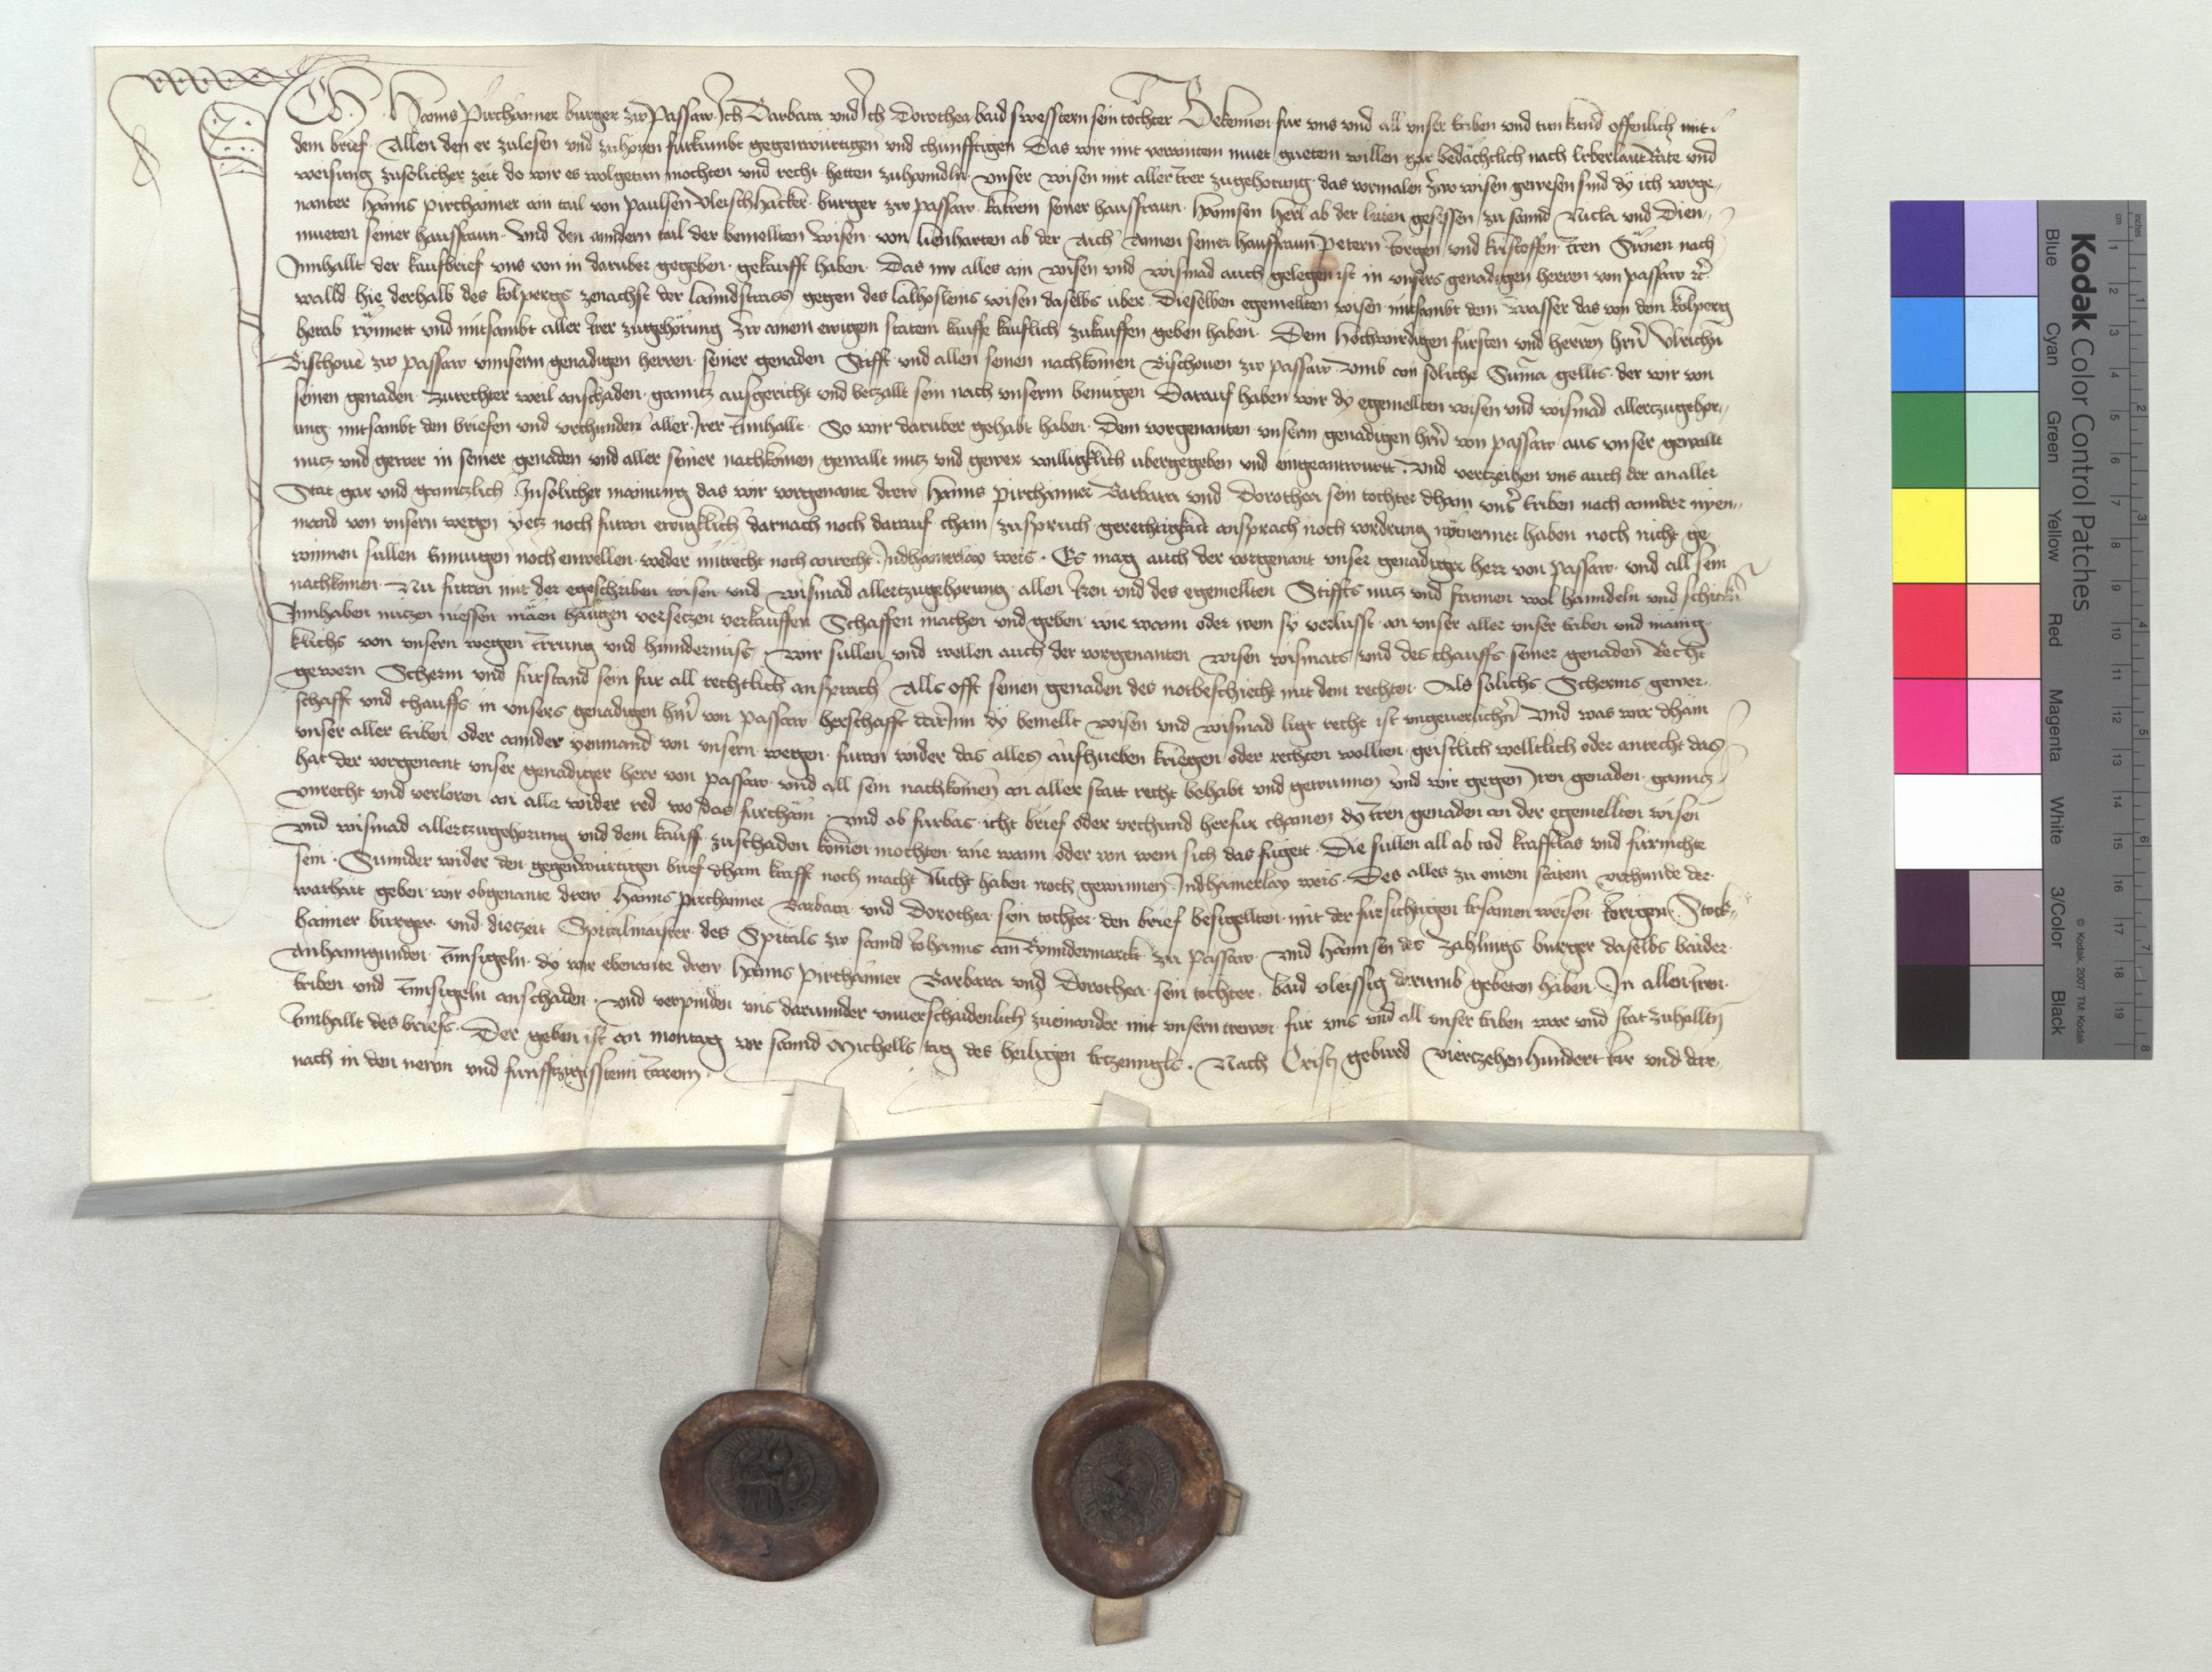 Ich Hanns Pirchaimer burger zw Passaw Ich Barbara und Ich Dorothea baid swesstern sein tochter Bekennen fur uns und all unser Erben und tun kund offenlich mit
dem brief Allen den er zulesen und zuhoren furkumbt gegenwürtigen und chunfftigen Das wir mit veraintem muet guetem willen gar bedachtlich nach Erber laut Rate und
weisung zusolicher zeit do wir es wolgetun mochten und recht hetten zuhanndln unser wisen mit aller Irer zugehorung das vormalen zwo wisen gewesen sind dy ich vorge-
nanter Hanns pirchaimer ain tail von paulsen vleischhacker burger zw passaw katrein seiner hausfraun Hannsen Herl ab der gesessen zu sannd Nicla und Dien-
mueten seiner hausfraun Und den anndern tail der bemellten wisen von lienharten ab der Aich Annen seiner hausfraun Petern Jorgen und kristoffen Iren Sünen nach
Innhallt der kaufbrief uns von in daruber gegeben gekaufft haben Das nw alles ain wisen und wismad auch gelegen ist in unsers genadigen herren von passaw etc
walld hie derhalb des kolpergs zenachst der lanndstrass gegen des wisen daselbs uber Dieselben egemellten wisen mitsambt dem wasser das von dem kolperg
herab rynnett und mitsambt aller Irer zugehörung zw ainem ewigem statem kauffe kauflich zukauffen geben haben Dem Hochwirdigen fursten und herren hrn Ulrichn
Bischove zw passaw unnserm genadigen herren seiner genaden Stifft und allen seinen nachkomen Bischoven zw passaw Umb ain soliche Suma gellts der wir von
seinen genaden zurechter weil anschaden ganntz ausgericht und betzallt sein nach unserm benuegen Darauf haben wir dy egemellten wisen und wismad allertzugehor-
ung mitsambt den briefen und urchunden aller Irer Innhallt So wir daruber gehabt haben Dem vorgenanten unserm genadigen hrn von passaw aus unser gewallt
nutz und gewer in seiner genaden und aller seiner nachkomen gewallt nutz und gewer willigklich ubergegeben und eingeantwurtt Und vertzeihen uns auch der an aller
Stat gar und ganntzlich Insolicher mainung das wir vorgenante drew Hanns pirchaimer Barbara und Dorothea sein tochter dhain uns Erben noch annder nyen-
mand von unsern wegen yetz noch furan ewigklich darnach noch darauf chain zuspruch gerechtigkait ansprach noch vordrung nymermer haben noch nicht ge-
winnen sullen noch enwellen weder mitrecht noch anrecht Indhainerlay weis Es mag auch der vorgenant unser genadiger herr von passaw und all sein
nachkomen Nu furan mit der egeschriben wisen und wismad allertzugehorung allen Iren und des egemellten Stiffts nutz und frumen wol hanndeln und schickn
Innhaben nutzen niessen mäen haÿgen versetzen verkauffen Schaffen machen und geben wie wann oder wem sy verlusst an unser aller unser Erben und mänig-
klichs von unsern wegen Irrung und hindernuss Wir sullen und wellen auch der vorgenanten wisen wismats und des chauffs seiner genaden Recht
gewern Scherm und furstand sein fur all rechtlich ansprach Alls offt seinen genaden des notbeschiecht mit dem rechten Als solichs Scherms gewer-
schafft und chauffs in unsers genadigen hrn von passaw herschafft darInn dy bemellt wisen und wismad ligt recht ist ungeverlichn Und was wir dhain
unser aller Erben oder annder yemmand von unsern wegen furan wider das alles aufhueben kriegen oder rechten wollten geistlich welltlich oder anrecht das
hat der vorgenant unser genadiger herr von passaw und all sein nachkomen an aller statt recht behabt und gewunnen und wir gegen Iren genaden ganntz
unrecht und verloren an alle wider red wo das furchäm Und ob furbas icht brief oder urchund herfur chamen dy Iren genaden an der egemellten wisen
und wismad allertzugehorung und dem kauff zuschaden komen mochten wie wann oder von wem sich das fugett Die sullen all ab tod krafftlas und furnichte
sein Sunnder wider den gegenwürtigen brief dhain krafft noch macht nicht haben noch gewinnen Indhainerlay weis Des alles zu einem statem urchunde der
warhait geben wir obgenante drew Hanns pirchaimer Barbara und Dorothea sein tochter den brief besigellten mit der fursichtigen Ersamen weisen Jorigen Stock-
haimer burger und dietzeit Spitalmaister des Spitals zw sannd Johanns am Rynndermarckt zu passaw und Hannsen des Zahlings burger daselbs baider
Anhanngunden Innsigeln dy wir ebenante drew Hanns pirchaimer Barbara und Dorothea sein tochter baid vleissig darumb gebeten haben In allen Iren
Erben und Innsigeln anschaden Und verpinden uns darunnder unverschaidenlich zueinander mit unsern trewen fur uns und all unser Erben war und stat zuhalltn
Innhallt des briefs Der geben ist An montag vor sannd Michells tag des heiligen Ertzenngls Nach Cristi geburd Viertzehenhundert Jar und dar-
nach in den newn und funfftzigissten Jaren
Kodak Color Control Patches
© Kodak, 2007 TM: Kodak
Blue Cyan Green Yellow Red Magenta White 3/Color Black
inches 1 2 3 4 5 6 7 8
cm 1 2 3 4 5 6 7 8 9 10 11 12 13 14 15 16 17 18 19